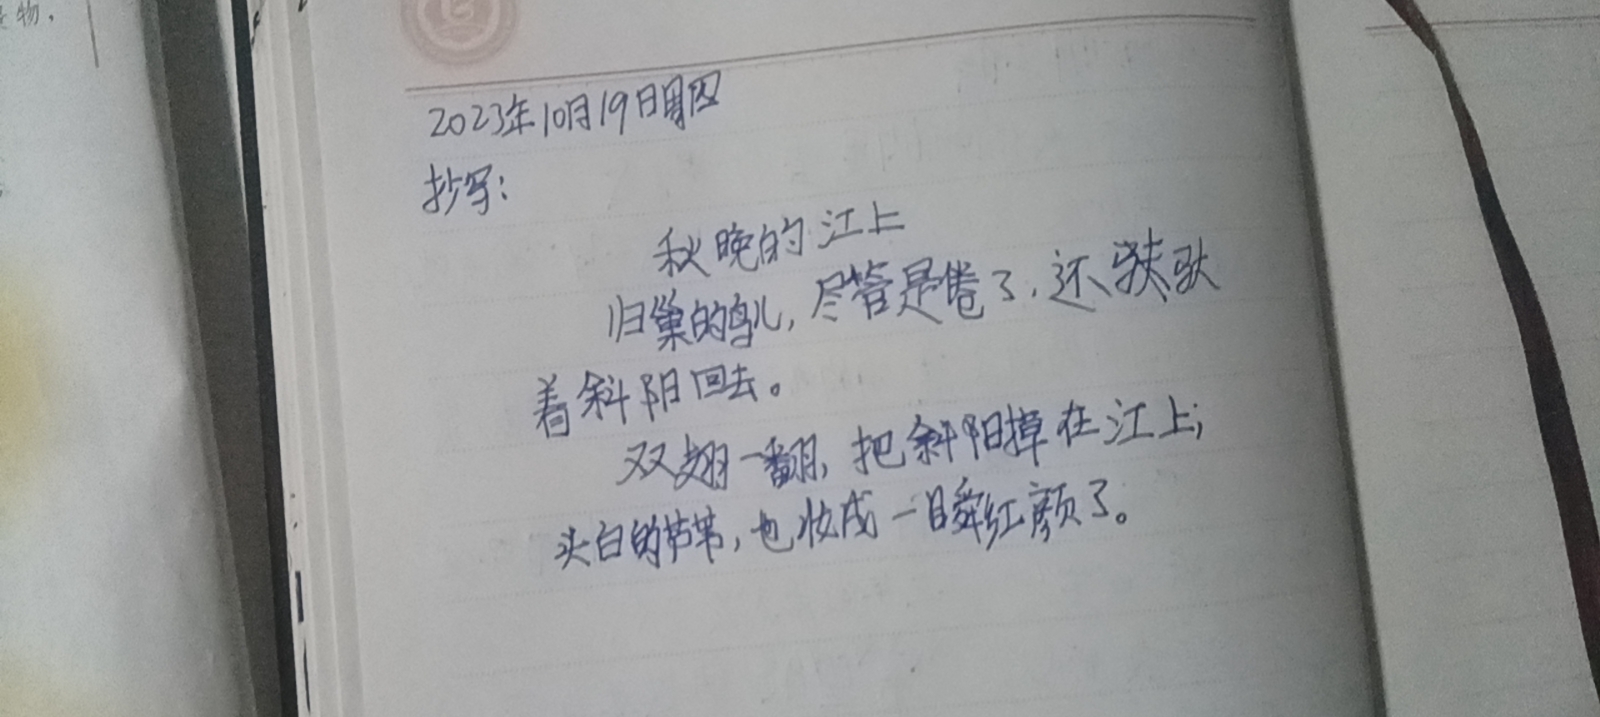 物，
2023年10月19日周四
抄写：
秋晚的江上
归巢的鸟儿，尽管是倦了，还驮
着斜阳回去。
双翅一翻，把斜阳掉在江上；
头白的芦苇，也妆成一瞬红颜了。